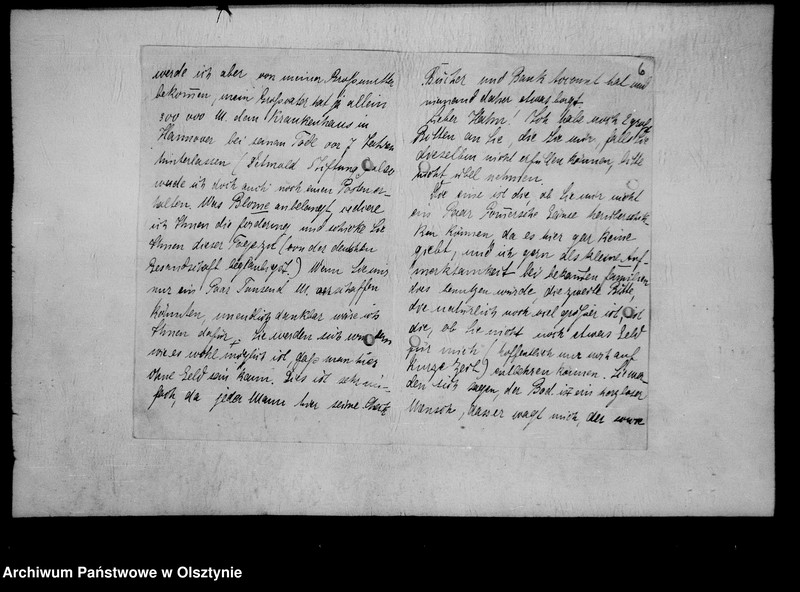 werde ich aber von meiner Großmutter
bekommen, mein Großvater hat ja allein
300 000 M. dem Krankenhaus in
Hannover bei seinem Tode vor 7 Jahren
hinterlassen ( Stiftung)
werde ich doch auch noch einen Posten er-
halten. Was Blome anbelangt, cediere
ich Ihnen die Forderung und schicke Sie
Ihnen dieser Tage zu (von der deutschen
Gesandschaft beglaubigt.) Wenn Sie mir
nur ein Paar Tausend M. verschaffen
könnten, unendlich dankbar wäre ich
Ihnen dafür. Sie werden sich wundern
wie es wohl möglich ist, daß man hier
ohne Geld sein kann. Dies ist sehr ein-
fach, da jeder Mann hier seine
6
Bücher und Bank hat und
niemand daher etwas borgt.
Lieber Hahn! Ich habe noch 2 große
Bitten an Sie, die Sie mir, falls Sie
dieselben nicht erfüllen können, bitte
nicht übel nehmen.
Die eine ist die, ob Sie mir nicht
ein Paar Pommersche Gänse herüberschik-
ken können, da es hier gar keine
giebt, und ich gern als kleine Auf-
merksamkeit bei bekannten Familien
dies benutzen würde, die zweite Bitte,
die natürlich noch viel größer ist, ist
die, ob Sie nicht noch etwas Geld
für mich (hoffentlich nur noch auf
kurze Zeit) entbehren können. Sie wer-
den sich sagen, der ist ein herzloser
Mensch, daß er wagt mich, der
Archiwum Państwowe w Olsztynie